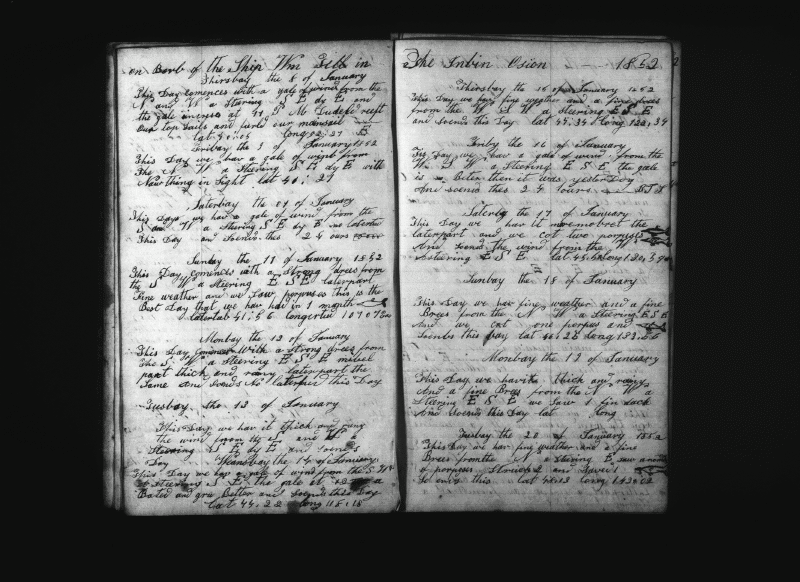 on Borb of the Ship Wm Gebb in
Thirsbay the 8 of January
This Day comences with a gale of wind from the
N and W a Steering S E by E and
the gale increes at 11 P M Dudefe reeft
Our top Sails and furld our mainsail
lat 41:05 long 92:27 E
Friday the 9 of January 1852
This Day we hav a gale of wind from
The N W a Steering S E by E with
Nowthing in Sight lat 41:27
Saterbay the 01 of January
This Day we hav a gale of wind from the
S an W a Steering S E by E no laterter
This Day and Soends this 24 ours
Sunday the 11 of January 1852
This Day comences with a Strong brees from
the S W a Steering E S E laterpart
Fine weather and we Saw porpuses this is the
Best Day that we hav had in 1 month
latertab 41:56 longertud 107 07
Monbay the 12 of January
This Day comences With a strong brees from
The S W a Steering E S E mibel
part thick and rainy laterpart the
Same And Soends No laterter this Day
Tusbay the 13 of January
This Day we hav it thick and rany
the wind from the N and W a
Steering S E by E and Soends
Day Wensbay the 14 of January
This Day we hav a gale of wind from the S W
a Steering S E the gale at 12 a
Bater and gru Better and Soends this Day
lat 44:22 long 118:18
The Inbin Osion 1852
Thirsbay the 15 of January 1252
This Day we hav fine weather and a fine brees
from the W S W a Steering E S E
and Soends this Day lat 44:34 long 122,34
Friby the 16 of January
This Day we hav a gale of wind from the
W S W a Steering E S E the gale
is a Beter then it was yesterday
And soends thes 24 Iours
Saterby the 17 of January
This Day we hav it moremobret the
laterpart and we cot two porpuses
And Soends the wind from the W
a Steering E S E lat 45:58 long 130,39
Sunbay the 18 of January
This Day we hav fine weather and a fine
Brees from the N W a Steering E S E
And we cot one porpus and
Soends this Day lat 46:26 long
Monbay the 19 of January
This Day we hav it thick and rany
And a fine Brees from the N W a
Steering E S E we Saw 1 fin back
And Soends this Day lat long
Tusbay the 20 of January 1852
This Day we hav fine weather and a fine
Brees from the N a Steering E saw a
of porpuses Struck 2 and Saved 1
So ends this lat 46:13 long 143:02